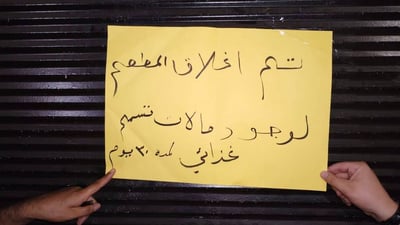 تم اغلاق المطعم
لوجود حالات تسمم
غذائي لمدة ٣٠ يوم